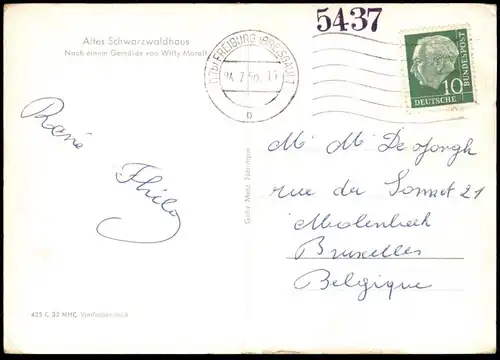 5437
Altes Schwarzwaldhaus
Nach einem Gemälde von Willy Moralt
(17b) FREIBURG (BREISGAU) 1
24.7.56.
b
10
DEUTSCHE
BUNDESPOST
René
Thilo
M. M. De Jongh
rue du Somset 21
Molenbeek
Bruxelles
Belgique
Gebr. Metz Tübingen
425 C. 32 MHC. Vierfarbendruck